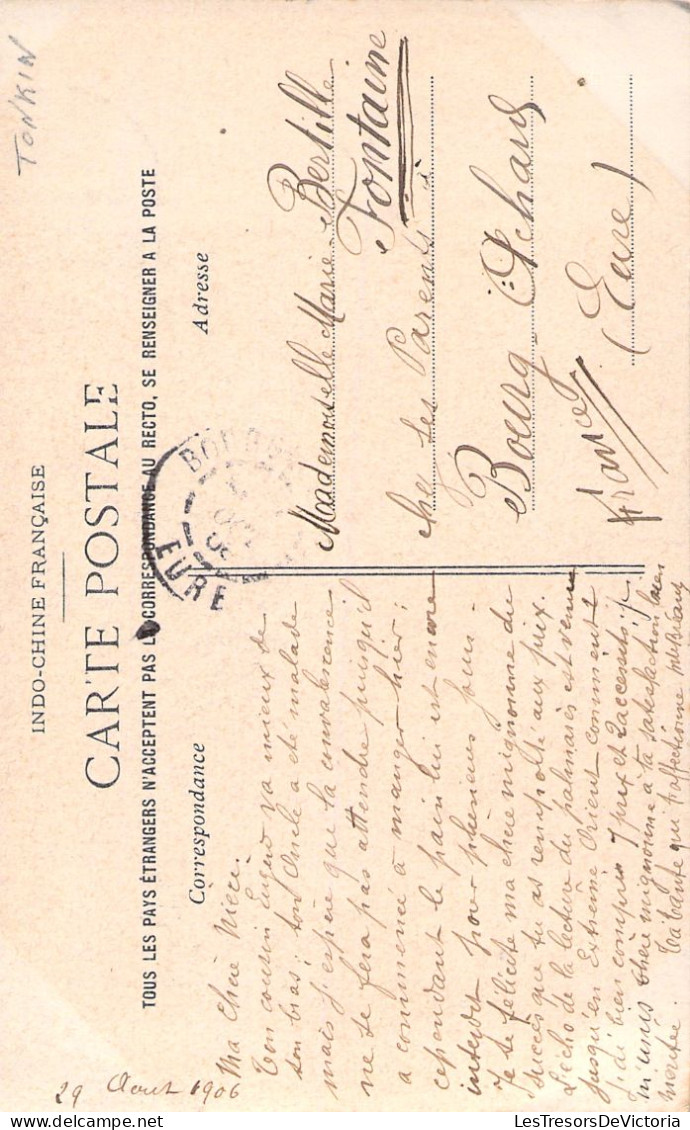 TONKIN
INDO-CHINE FRANÇAISE
CARTE POSTALE
TOUS LES PAYS ÉTRANGERS N'ACCEPTENT PAS LA CORRESPONDANCE AU RECTO, SE RENSEIGNER A LA POSTE
Correspondance
Adresse
29 Aout 1906
Ma Chère Nièce.
Ton cousin va mieux de
son bras; ton Oncle a été malade
mais j'espère que la convalescence
ne se fera pas attendre puisqu'il
a commencé à manger hier;
cependant le pain lui est encore
interdit pour plusieurs jours.
Je te félicite ma chère mignonne du
succès que tu as remporté aux prix.
L'écho de la lecture du palmarès est venu
jusqu'en Extrême Orient comment?
J'ai bien compris 7 prix et 2 accessits; je
m'unis chère mignonne à ta satisfaction bien
méritée. Ta tante qui t'affectionne
Mademoiselle Marie-Bertille
Fontaine
chez ses Parents
Bourg-Achard
(Eure)
France
EURE
LesTresorsDeVictoria
delcampe.net
LesTresorsDeVictoria